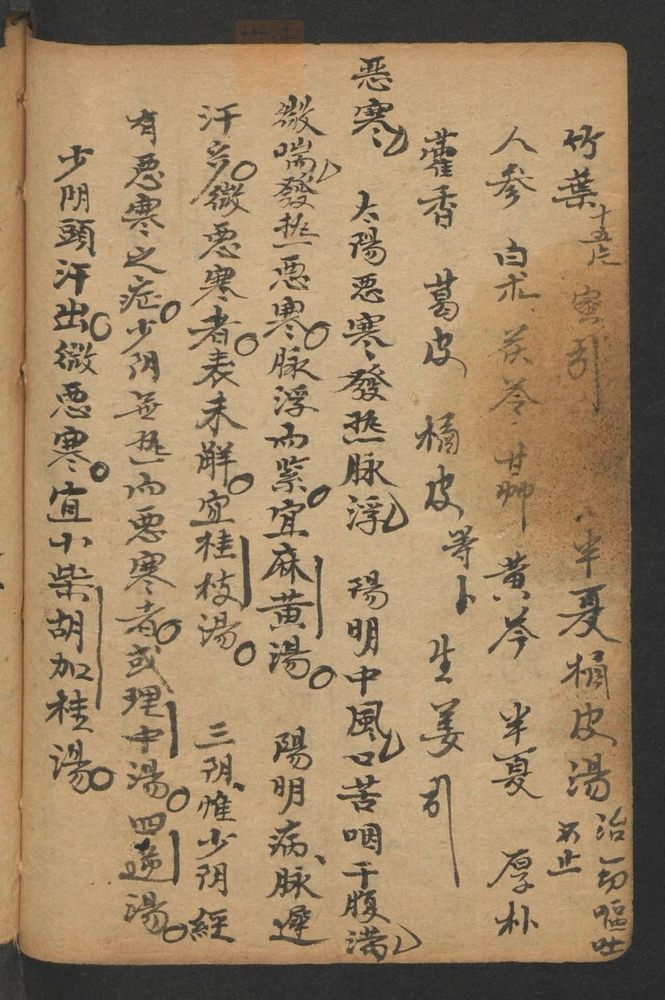 竹葉十五片 蜜引 半夏橘皮湯治一切嘔吐不止
人參 白朮 茯苓 甘艸 黃芩 半夏 厚朴
藿香 葛皮 橘皮等卜 生姜引
惡寒 太陽惡寒發热脉浮 陽明中風口苦咽干腹满
微喘發热惡寒脉浮而紧宜麻黃湯 陽明病脉遲
汗多微惡寒者表未解宜桂枝湯 三阴惟少阴經
有惡寒之症少阴無热而惡寒者或理中湯四逆湯
少阴頭汗出微惡寒宜小柴胡加桂湯